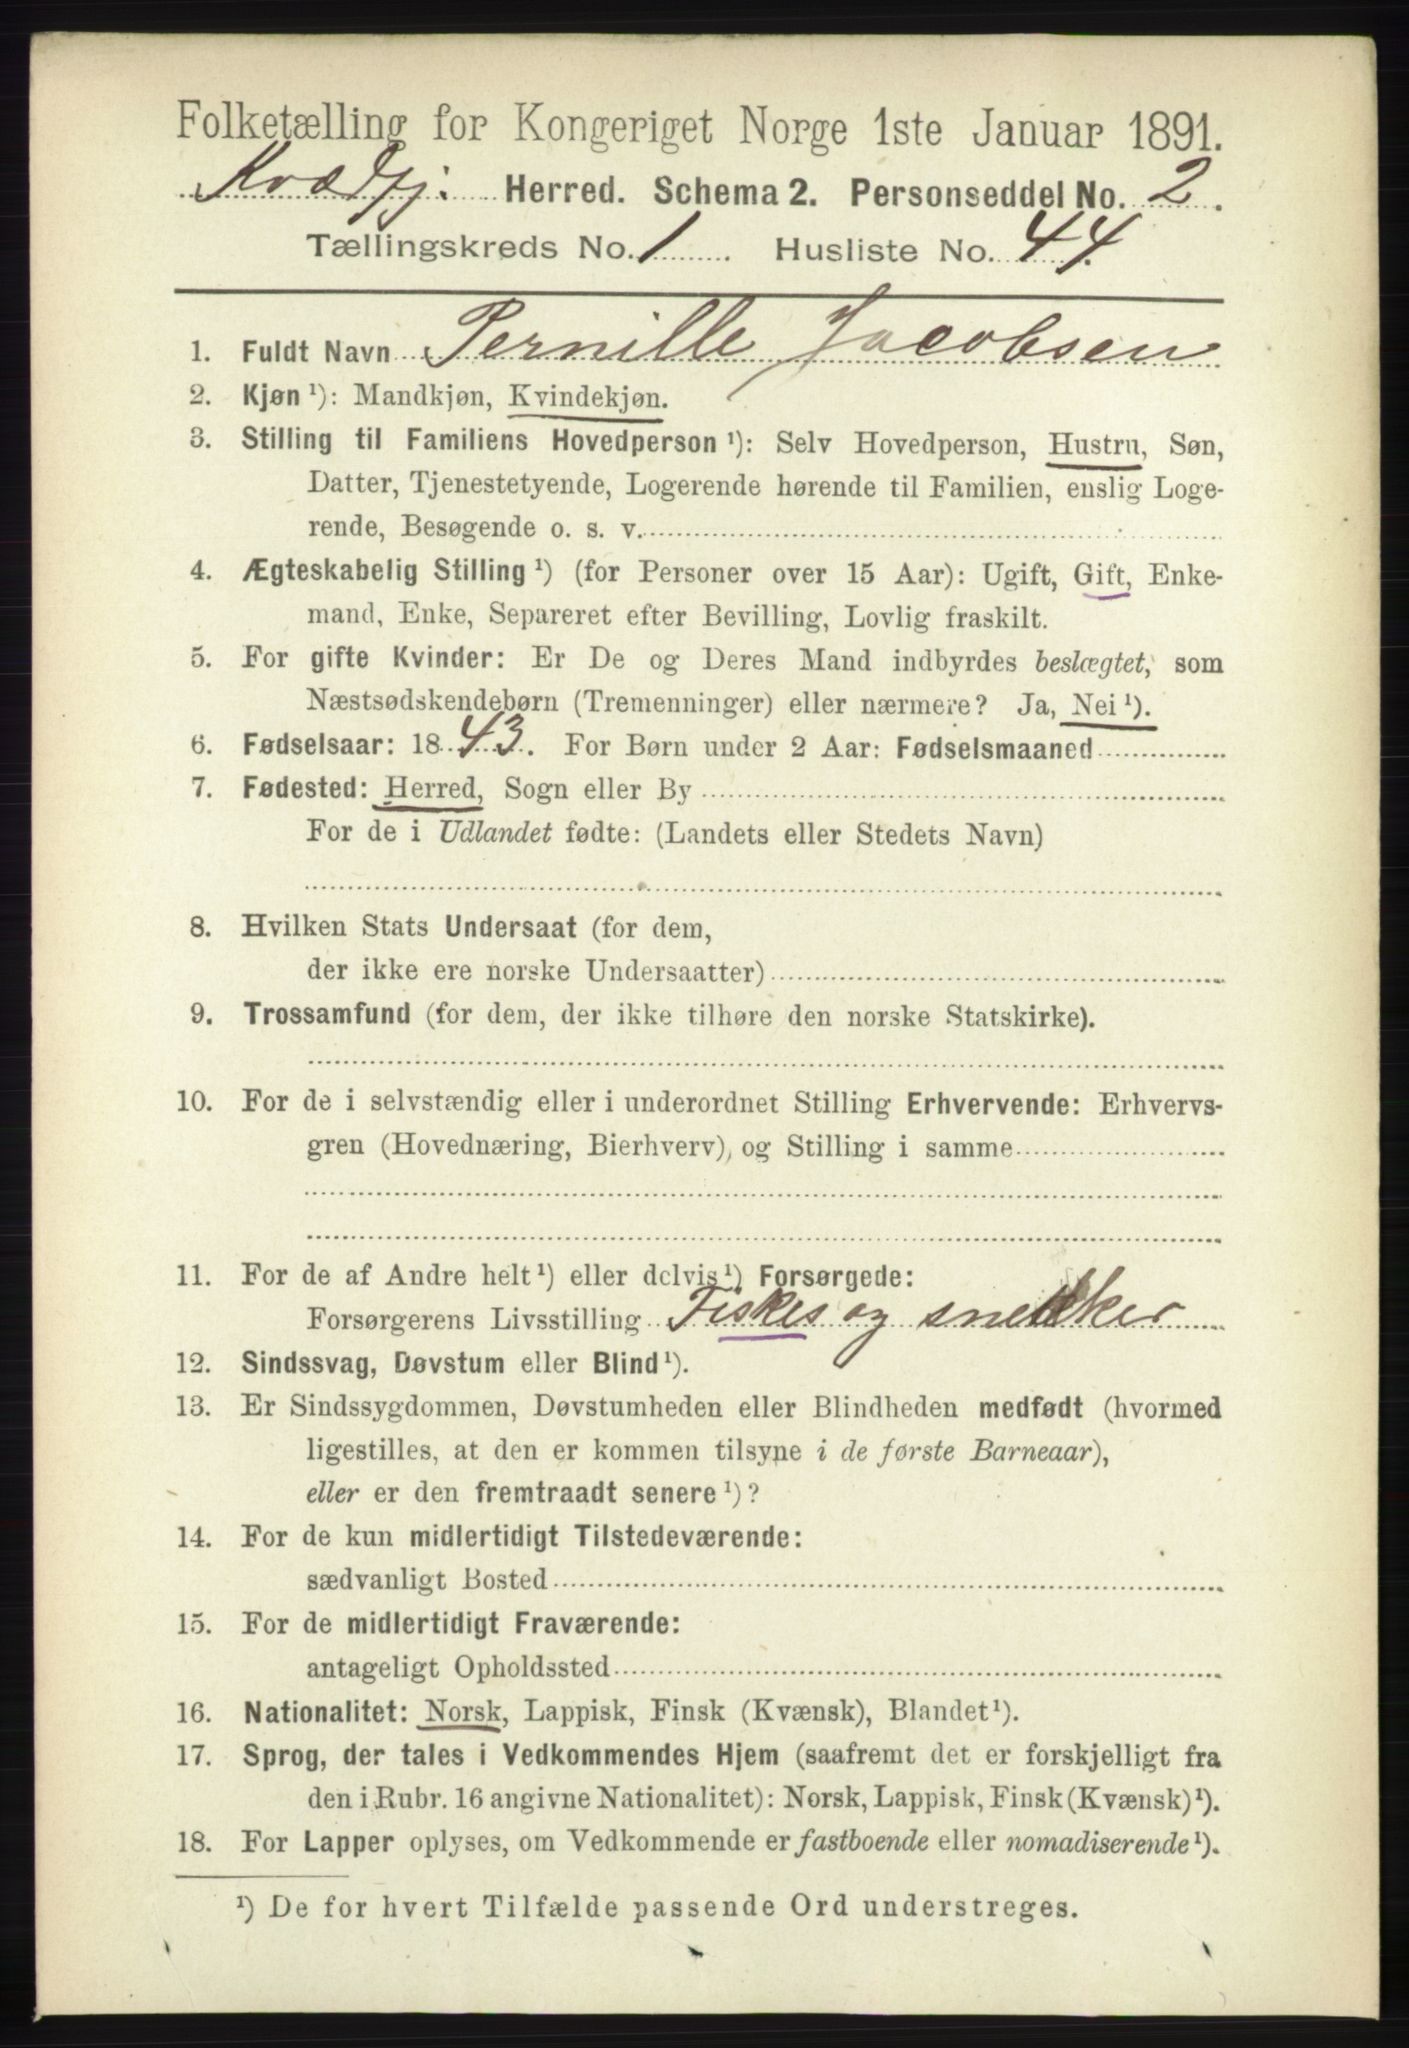 Folketælling for Kongeriget Norge 1ste Januar 1891.
Kvædfj. Herred. Schema 2. Personseddel No. 2.
Tællingskreds No. 1. Husliste No. 44.
1. Fuldt Navn Pernille Jacobsen
2. Kjøn ¹): Mandkjøn, Kvindekjøn.
3. Stilling til Familiens Hovedperson ¹): Selv Hovedperson, Hustru, Søn,
Datter, Tjenestetyende, Logerende hørende til Familien, enslig Loge-
rende, Besøgende o. s. v.
4. Ægteskabelig Stilling ¹) (for Personer over 15 Aar): Ugift, Gift, Enke-
mand, Enke, Separeret efter Bevilling, Lovlig fraskilt.
5. For gifte Kvinder: Er De og Deres Mand indbyrdes beslægtet, som
Næstsødskendebørn (Tremenninger) eller nærmere? Ja, Nei ¹).
6. Fødselsaar: 1843. For Børn under 2 Aar: Fødselsmaaned
7. Fødested: Herred, Sogn eller By
For de i Udlandet fødte: (Landets eller Stedets Navn)
8. Hvilken Stats Undersaat (for dem,
der ikke ere norske Undersaatter)
9. Trossamfund (for dem, der ikke tilhøre den norske Statskirke).
10. For de i selvstændig eller i underordnet Stilling Erhvervende: Erhvervs-
gren (Hovednæring, Bierhverv), og Stilling i samme
11. For de af Andre helt ¹) eller delvis ¹) Forsørgede:
Forsørgerens Livsstilling Fisker og snekker
12. Sindssvag, Døvstum eller Blind ¹).
13. Er Sindssygdommen, Døvstumheden eller Blindheden medfødt (hvormed
ligestilles, at den er kommen tilsyne i de første Barneaar),
eller er den fremtraadt senere ¹)?
14. For de kun midlertidigt Tilstedeværende:
sædvanligt Bosted
15. For de midlertidigt Fraværende:
antageligt Opholdssted
16. Nationalitet: Norsk, Lappisk, Finsk (Kvænsk), Blandet ¹).
17. Sprog, der tales i Vedkommendes Hjem (saafremt det er forskjelligt fra
den i Rubr. 16 angivne Nationalitet): Norsk, Lappisk, Finsk (Kvænsk) ¹).
18. For Lapper oplyses, om Vedkommende er fastboende eller nomadiserende ¹).
¹) De for hvert Tilfælde passende Ord understreges.